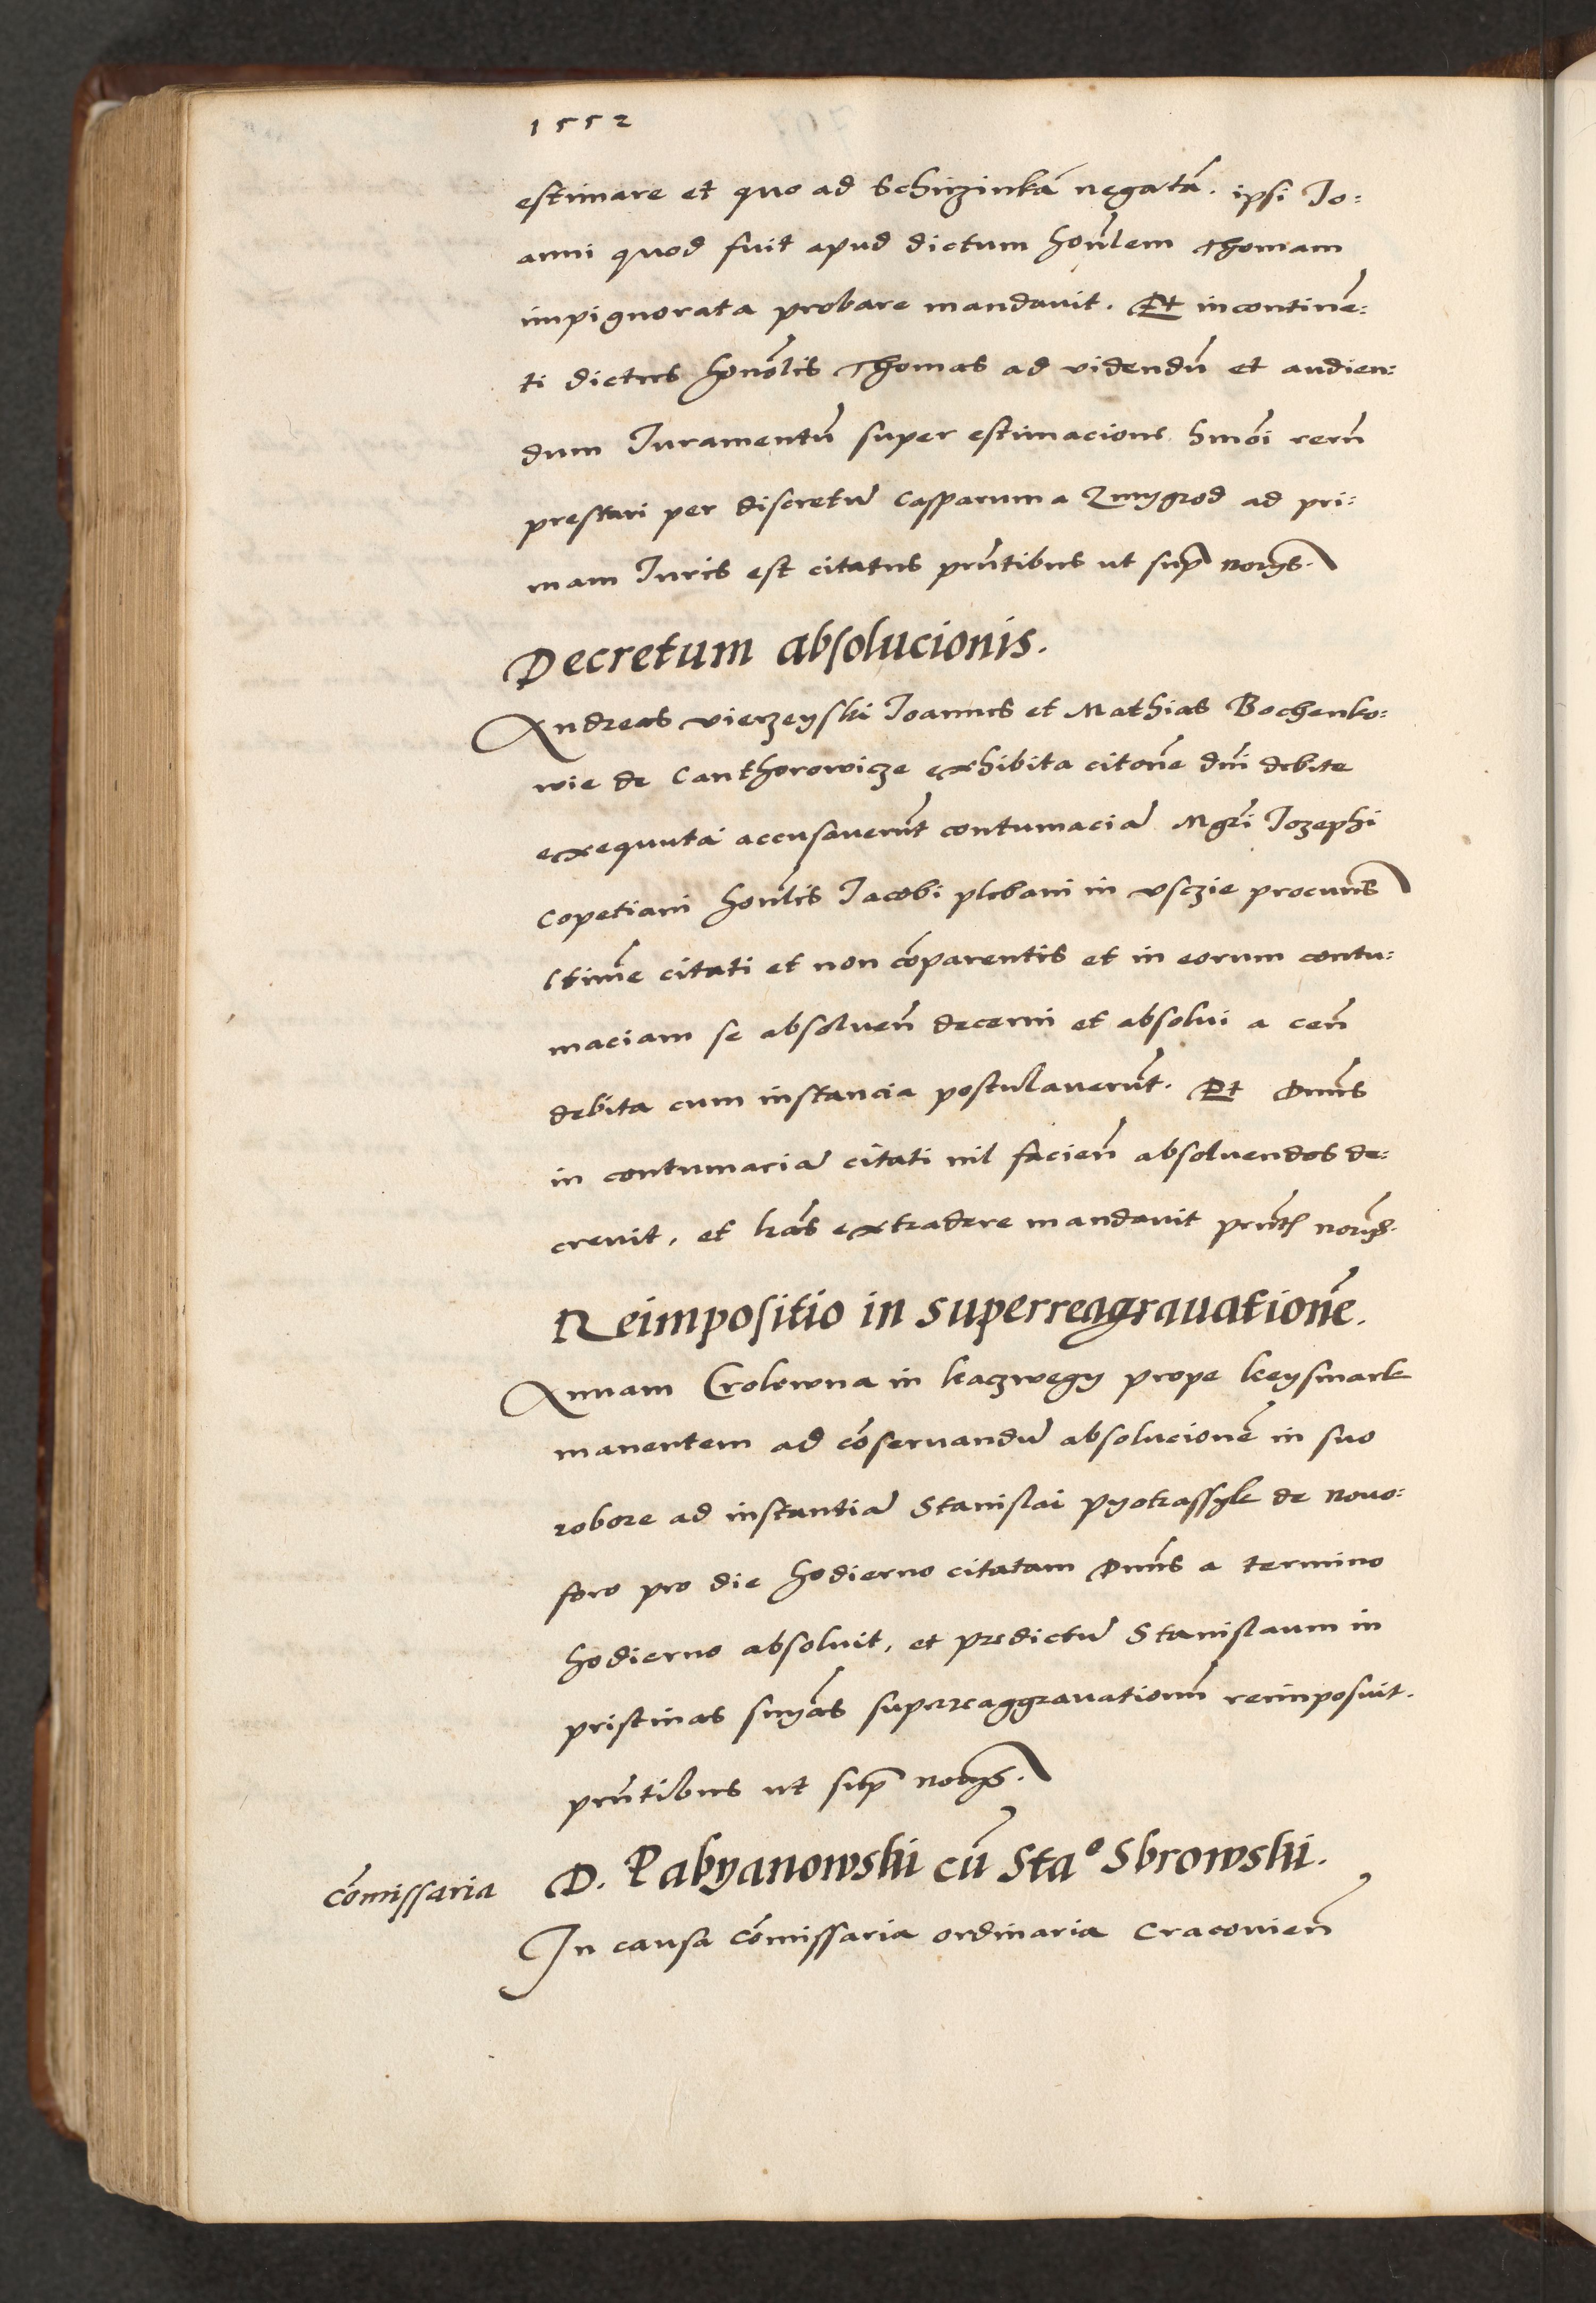 1552
estimare et quo ad Schirzinkā negatā. ipsi Jo:
anni quod fuit apud dictum honlem Thomam
impignorata probare mandauit. Et incontinē:
ti dictus honolis Thomas ad videndū et audien:
dum Juramentū super estimacione hmōi rerū
prestari per discretū Casparum a Zmygrod ad pri:
mam Juris est citatus pn̄tibus ut sup norys.
Decretum absolucionis.
Andreas vierzeyski Joannes et Mathias Bochenko:
wie de Canthorowicze exhibita citōne dni debite
exequuta accusauerūt contumaciā Mgri Jozephi
Copetiani honlis Jacobi plebani in vsczie procuris
ltime citati et non cōparentis et in eorum contu:
maciam se absoluen̄ decerni et absolui a cen̄
debita cum instancia postulauerūt. Et Dnus
in contumaciā citati nil facien̄ absoluendos de:
creuit, et lras extradere mandauit pn̄tib norys.
Reimpositio in superreagrauationē.
Annam Crolowna in kaczwegy prope keysmark
manentem ad cōseruandū absolucionē in suo
robore ad instantiā Stanislai pyotrassyk de Nouo:
foro pro die hodierno citatam Dnus a termino
hodierno absoluit, et predictū Stanislaum in
pristinas snyas superreaggrauationū reimposuit.
pn̄tibus ut sup norys.
cōmissaria
D. Pabyanowski cū Sta° Sbrowski.
In causa cōmissaria ordinaria Cracouien̄